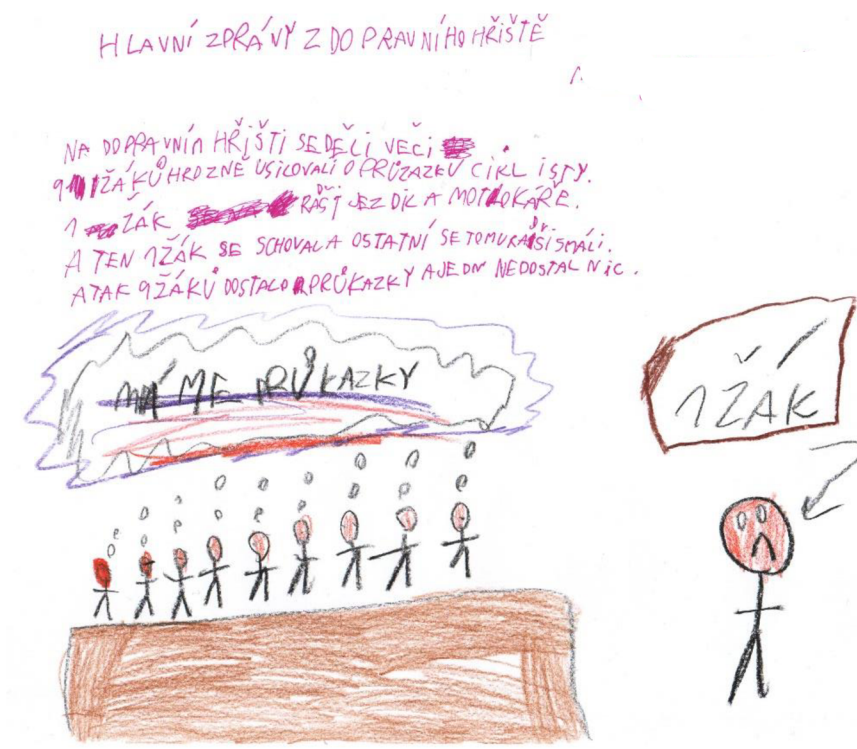 HLAVNÍ ZPRÁVY Z DOPRAVNÍHO HŘIŠTĚ
NA DOPRAVNÍM HŘIŠTI SEDĚLI VEČI
9 ŽÁKŮ HROZNĚ USILOVALI O PRŮZAZKU CIKLISTY.
1 ŽÁK JEZDIL A MOTOKÁŘE.
A TEN 1ŽÁK SE SCHOVAL A OSTATNÍ SE TOMU SMÁLI.
A TAK 9ŽÁKŮ DOSTALO PRŮKAZKY A JEDN NEDOSTAL NIC.
MÁME PRŮKAZKY
1ŽÁK